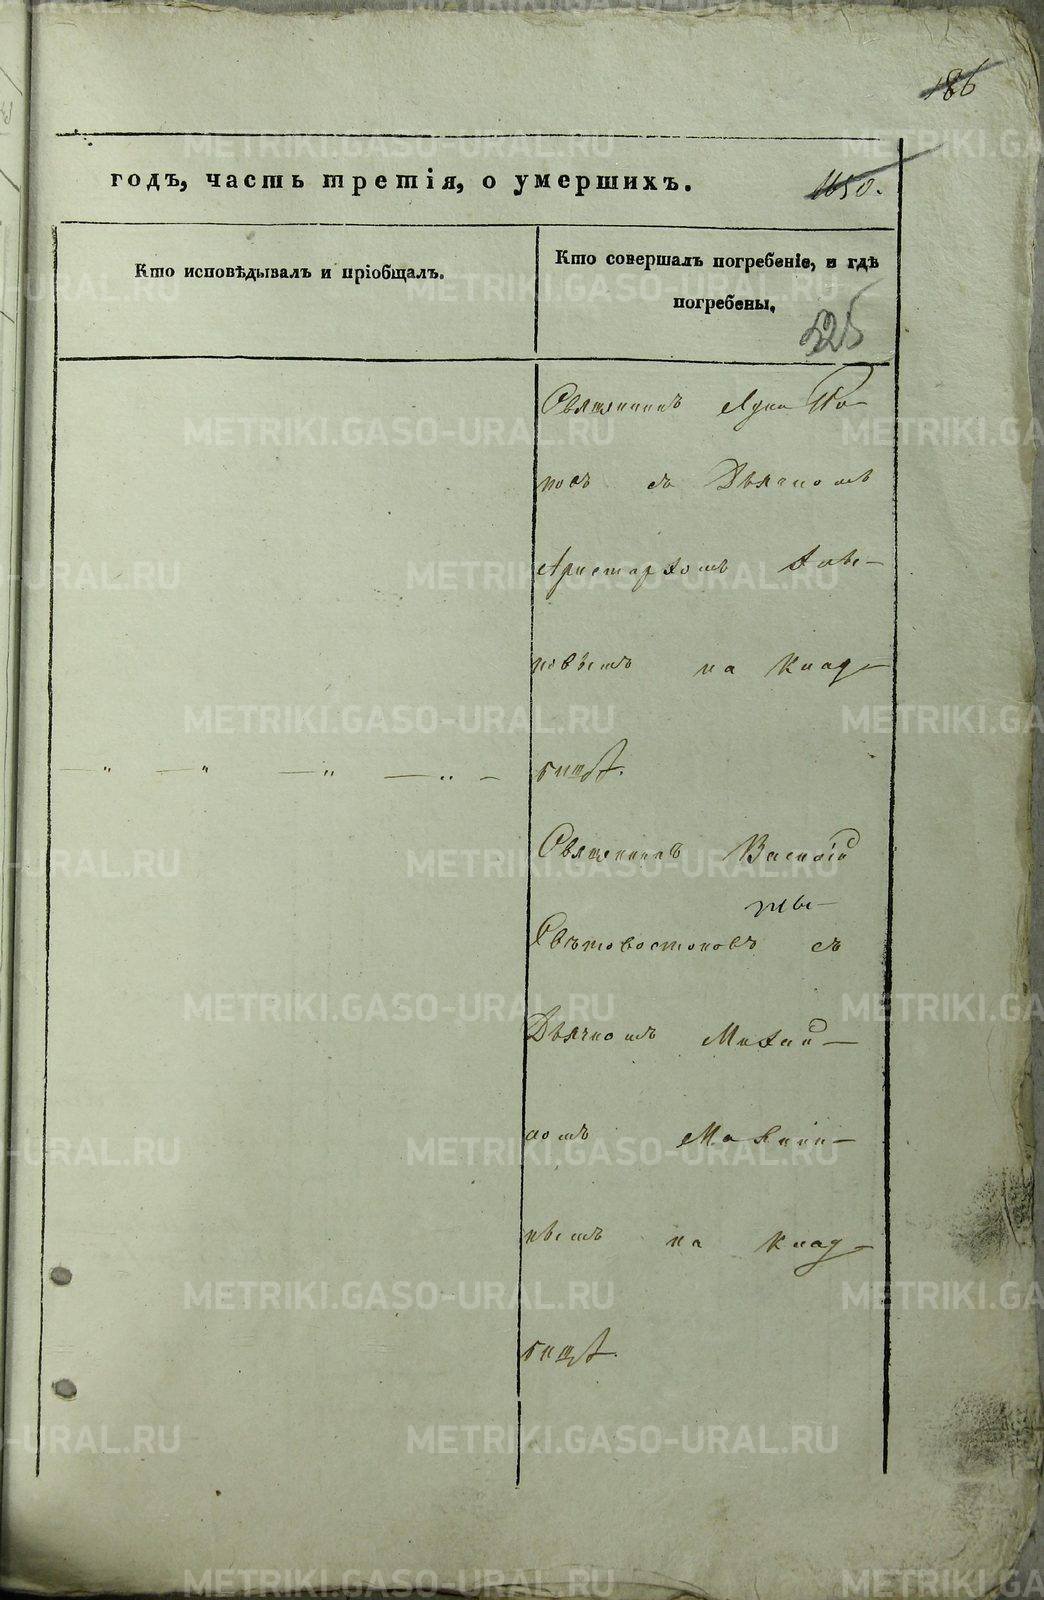 186
годъ, часть третія, о умершихъ.
1650.
Кто исповѣдывалъ и пріобщалъ.
Кто совершалъ погребеніе, и гдѣ
погребены,
525
Священникъ Лука По-
повъ съ Дьячкомъ
Аристархомъ
на клад-
бищѣ.
Священникъ Василій
Свѣтовостоковъ съ
Дьячкомъ Михаи-
ломъ
на клад-
бищѣ.
METRIKI.GASO-URAL.RU